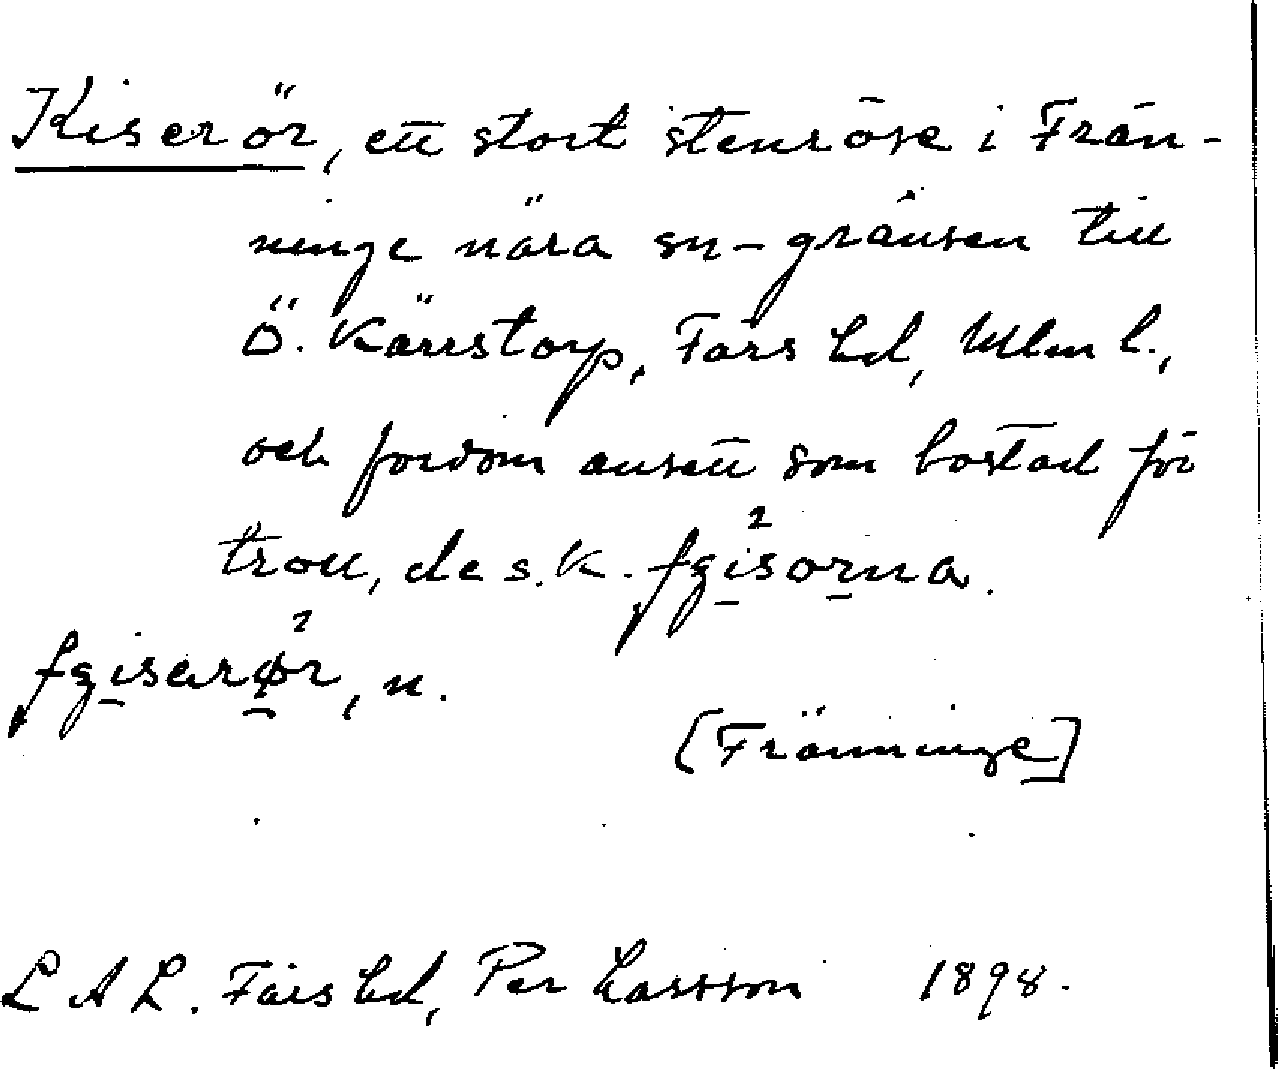 Kiserör, ett stort stenröse i Frän-
ninge nära sn-gränsen till
Ö. Kärrstorp, Färs hd, Mlm l.,
och fordom ansett som bostad för
troll, de s.k.
n.
[Fränninge]
L A L. Färs hd, Per Larsson 1898.